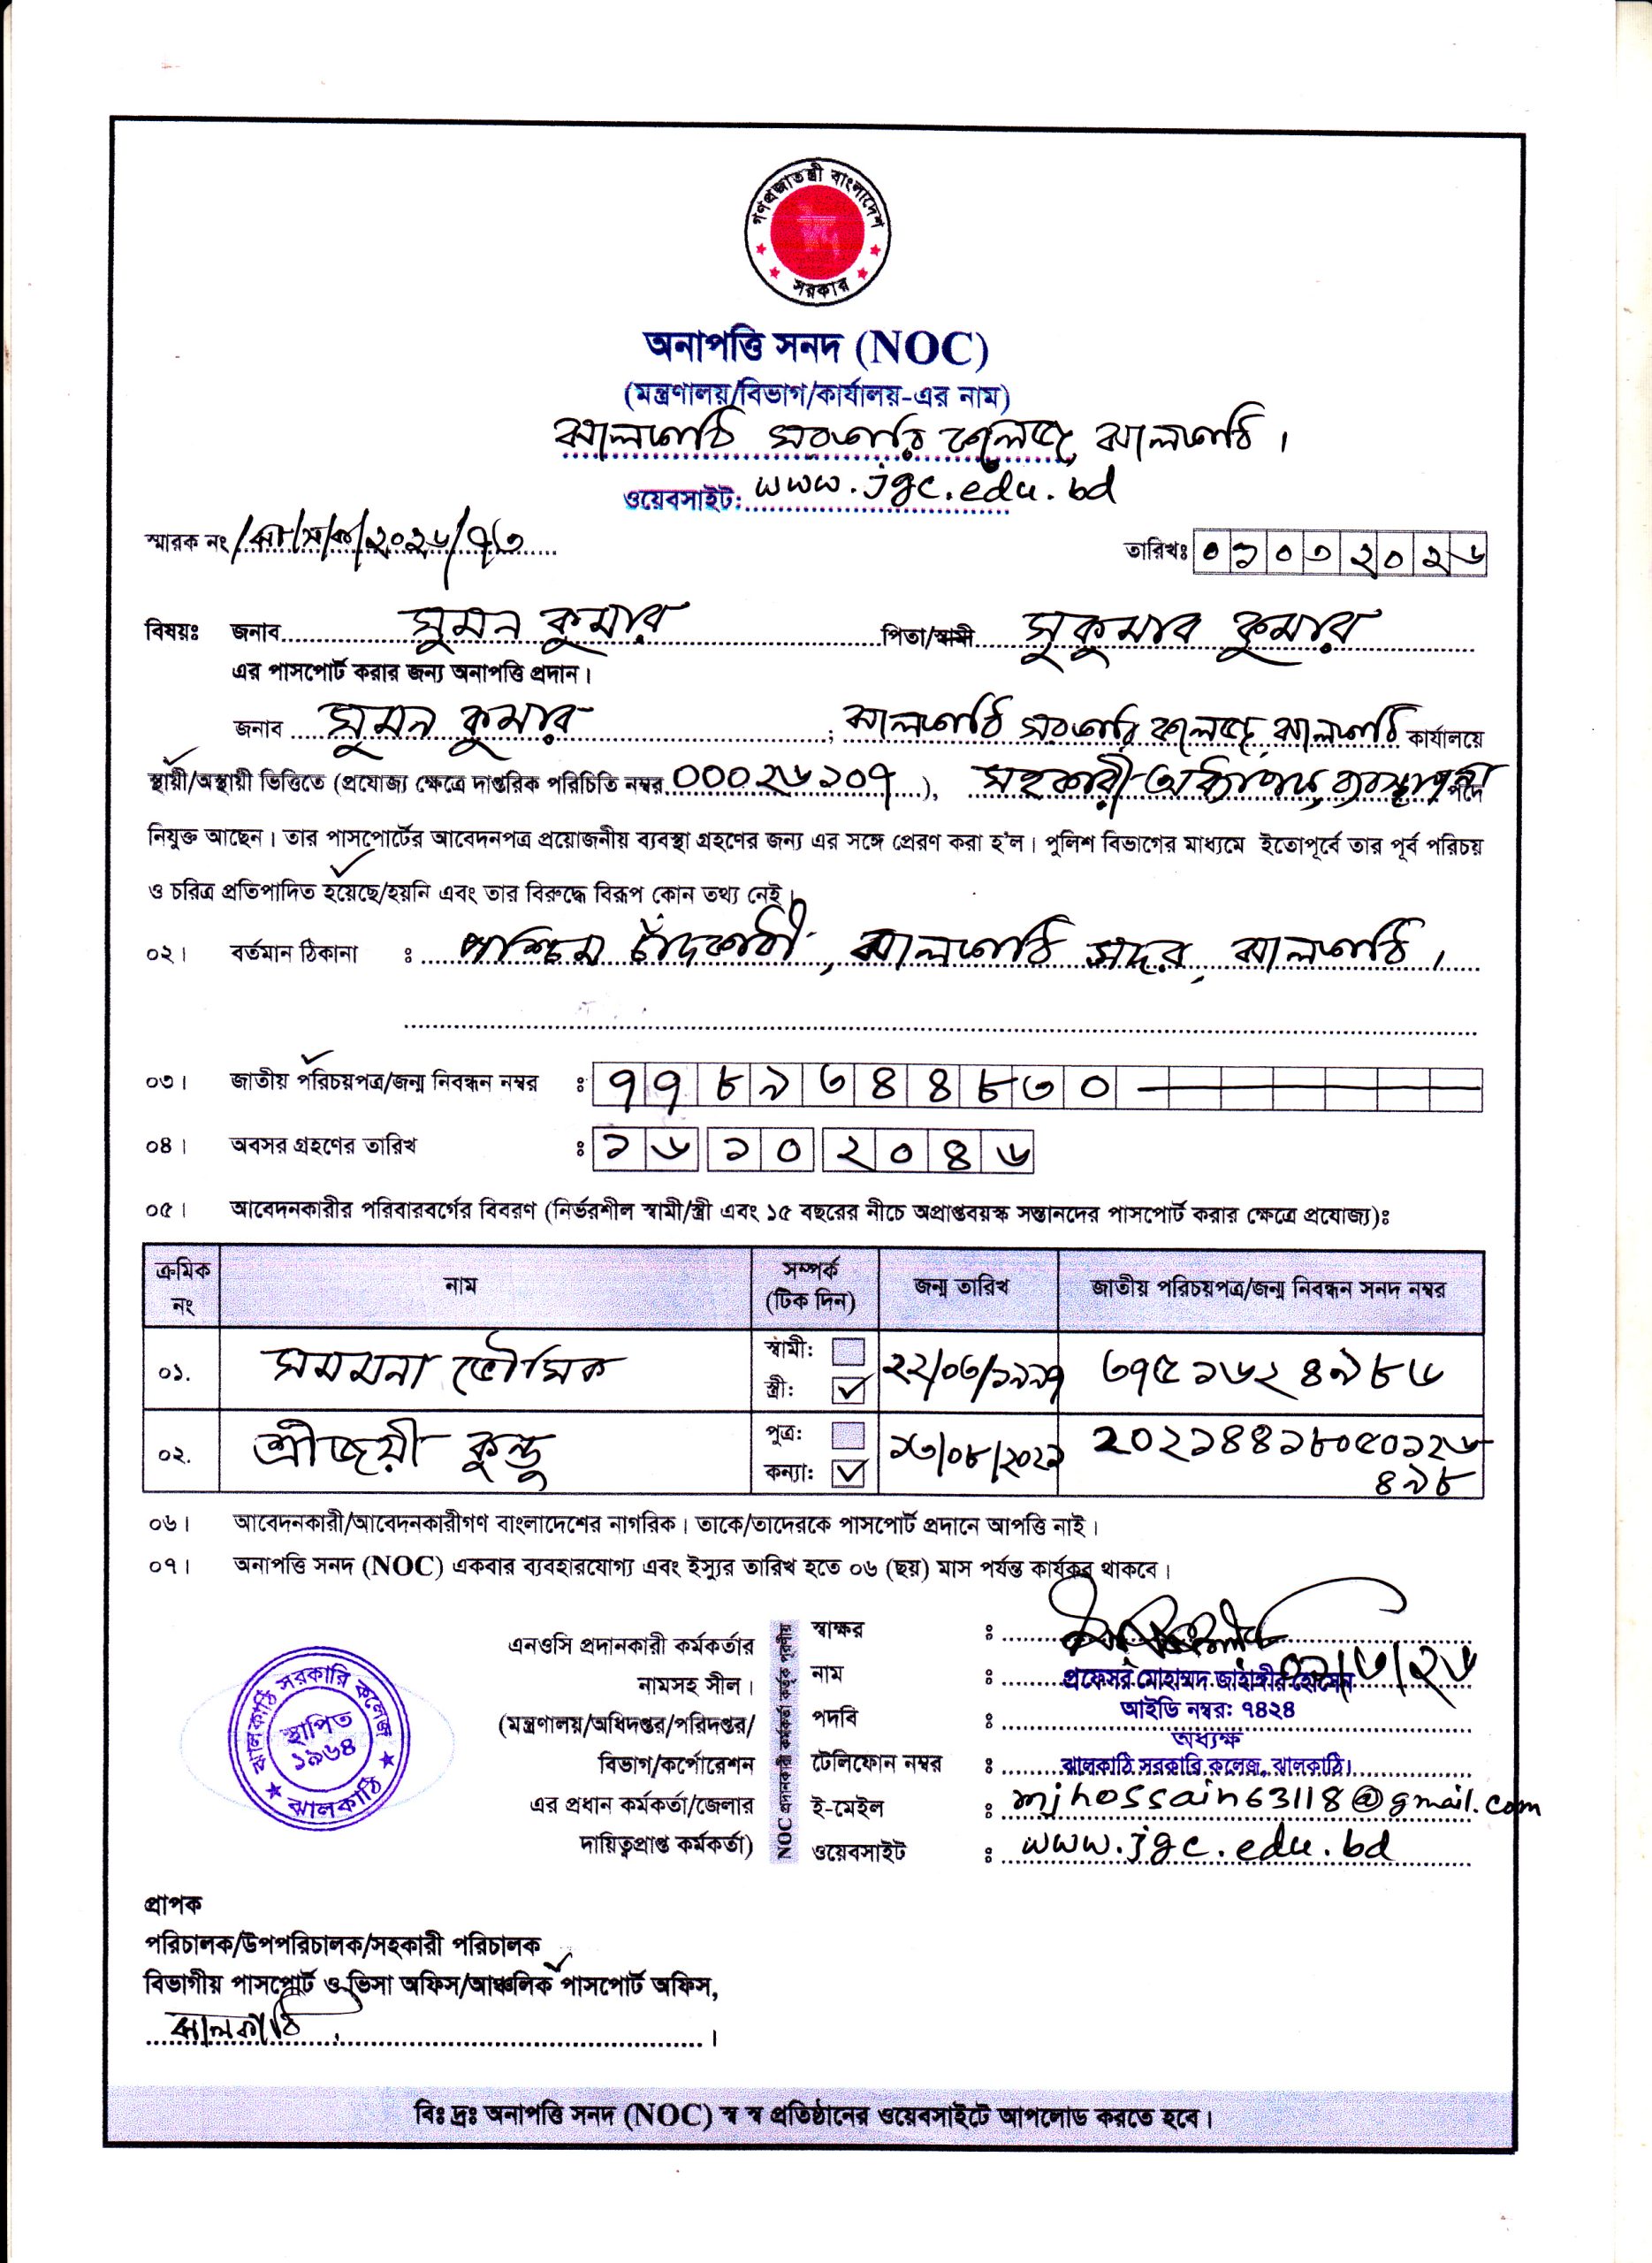 গণপ্রজাতন্ত্রী বাংলাদেশ
সরকার
অনাপত্তি সনদ (NOC)
(মন্ত্রণালয়/বিভাগ/কার্যালয়-এর নাম)
ঝালকাঠি সরকারি কলেজ, ঝালকাঠি।
ওয়েবসাইট: www.jgc.edu.bd
স্মারক নং /ঝা/স/ক/২০২৬/৭৩ তারিখঃ ০১০৩২০২৬
বিষয়ঃ জনাব সুমন কুমার পিতা/স্বামী সুকুমার কুমার
এর পাসপোর্ট করার জন্য অনাপত্তি প্রদান।
জনাব সুমন কুমার; ঝালকাঠি সরকারি কলেজ, ঝালকাঠি কার্যালয়ে
স্থায়ী/অস্থায়ী ভিত্তিতে (প্রযোজ্য ক্ষেত্রে দাপ্তরিক পরিচিতি নম্বর ০০০২৬১০৭), সহকারী অধ্যাপক, ব্যবস্থাপনা পদে
নিযুক্ত আছেন। তার পাসপোর্টের আবেদনপত্র প্রয়োজনীয় ব্যবস্থা গ্রহণের জন্য এর সঙ্গে প্রেরণ করা হ'ল। পুলিশ বিভাগের মাধ্যমে ইতোপূর্বে তার পূর্ব পরিচয়
ও চরিত্র প্রতিপাদিত হয়েছে/হয়নি এবং তার বিরুদ্ধে বিরূপ কোন তথ্য নেই।
০২। বর্তমান ঠিকানা : পশ্চিম চাঁদকাঠী, ঝালকাঠি সদর, ঝালকাঠি।
০৩। জাতীয় পরিচয়পত্র/জন্ম নিবন্ধন নম্বর : ৭৭৮৯৩৪৪৮৩০
০৪। অবসর গ্রহণের তারিখ : ১৬ ১০ ২০৪৬
০৫। আবেদনকারীর পরিবারবর্গের বিবরণ (নির্ভরশীল স্বামী/স্ত্রী এবং ১৫ বছরের নীচে অপ্রাপ্তবয়স্ক সন্তানদের পাসপোর্ট করার ক্ষেত্রে প্রযোজ্য)ঃ
ক্রমিক নং নাম সম্পর্ক (টিক দিন) জন্ম তারিখ জাতীয় পরিচয়পত্র/জন্ম নিবন্ধন সনদ নম্বর
০১. সমমনা ভৌমিক স্বামী: স্ত্রী: ✓ ২২/০৩/১৯৯৭ ৩৭৫১৬২৪৯৮৬
০২. শ্রীজয়ী কুন্ডু পুত্র: কন্যা: ✓ ১৩/০৮/২০২১ ২০২১৪৪১৮০৫০১২৬
৪৯৮
০৬। আবেদনকারী/আবেদনকারীগণ বাংলাদেশের নাগরিক। তাকে/তাদেরকে পাসপোর্ট প্রদানে আপত্তি নাই।
০৭। অনাপত্তি সনদ (NOC) একবার ব্যবহারযোগ্য এবং ইস্যুর তারিখ হতে ০৬ (ছয়) মাস পর্যন্ত কার্যকর থাকবে।
ঝালকাঠি সরকারি কলেজ
স্থাপিত
১৯৬৪
ঝালকাঠি
এনওসি প্রদানকারী কর্মকর্তার
নামসহ সীল।
(মন্ত্রণালয়/অধিদপ্তর/পরিদপ্তর/
বিভাগ/কর্পোরেশন
এর প্রধান কর্মকর্তা/জেলার
দায়িত্বপ্রাপ্ত কর্মকর্তা)
NOC প্রদানকারী কর্মকর্তা কর্তৃক পূরণীয়
স্বাক্ষর : ০১/৩/২৬
নাম : প্রফেসর মোহাম্মদ জাহাঙ্গীর হোসেন
আইডি নম্বর: ৭৪২৪
পদবি : অধ্যক্ষ
টেলিফোন নম্বর : ঝালকাঠি সরকারি কলেজ, ঝালকাঠি।
ই-মেইল : mjhossain63118@gmail.com
ওয়েবসাইট : www.jgc.edu.bd
প্রাপক
পরিচালক/উপপরিচালক/সহকারী পরিচালক
বিভাগীয় পাসপোর্ট ও ভিসা অফিস/আঞ্চলিক পাসপোর্ট অফিস,
ঝালকাঠি।
বিঃ দ্রঃ অনাপত্তি সনদ (NOC) স্ব স্ব প্রতিষ্ঠানের ওয়েবসাইটে আপলোড করতে হবে।